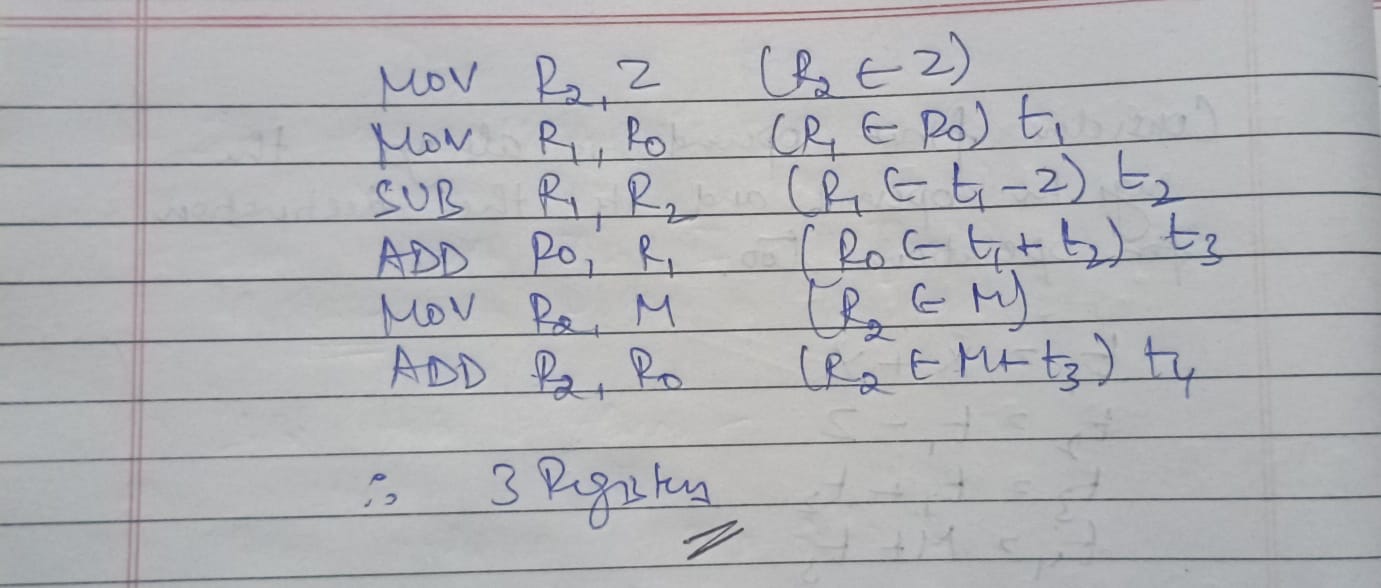 MOV R₂, Z (R₂ ← Z)
MOV R₁, R₀ (R₁ ← R₀) t₁
SUB R₁, R₂ (R₁ ← t₁ - Z) t₂
ADD R₀, R₁ (R₀ ← t₁ + t₂) t₃
MOV R₂, M (R₂ ← M)
ADD R₂, R₀ (R₂ ← M + t₃) t₄
∴ 3 Registers